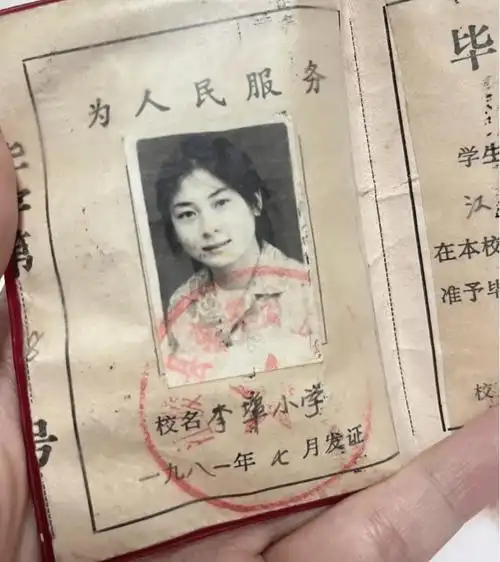 为人民服务
校名李 小学
一九八一年七月发证
第
号
毕
学生
江
在本校
准予毕
校